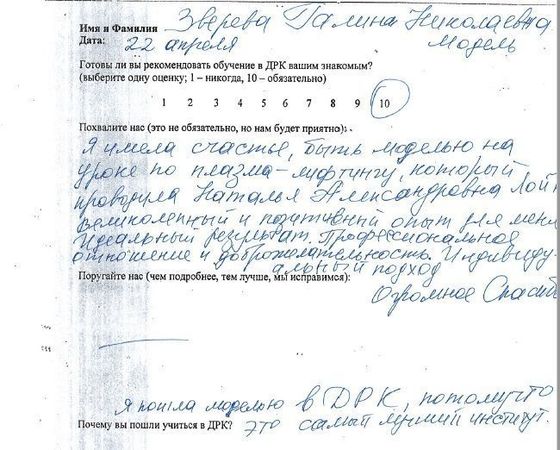 Имя и Фамилия Зверева Галина Николаевна
Дата: 22 апреля модель
Готовы ли вы рекомендовать обучение в ДРК вашим знакомым?
(выберите одну оценку; 1 – никогда, 10 – обязательно)
1 2 3 4 5 6 7 8 9 10
Похвалите нас (это не обязательно, но нам будет приятно):
Я имела счастье, быть моделью на
уроке по плазма-лифтингу, который
проводила Наталья Александровна
Великолепный и позитивный опыт для меня
Идеальный результат. Профессиональное
отношение и доброжелательность. Индивиду-
альный подход
Поругайте нас (чем подробнее, тем лучше, мы исправимся):
Огромное Спасиб
Я пошла моделью в ДРК, потому что
Почему вы пошли учиться в ДРК? это самый лучший институт.